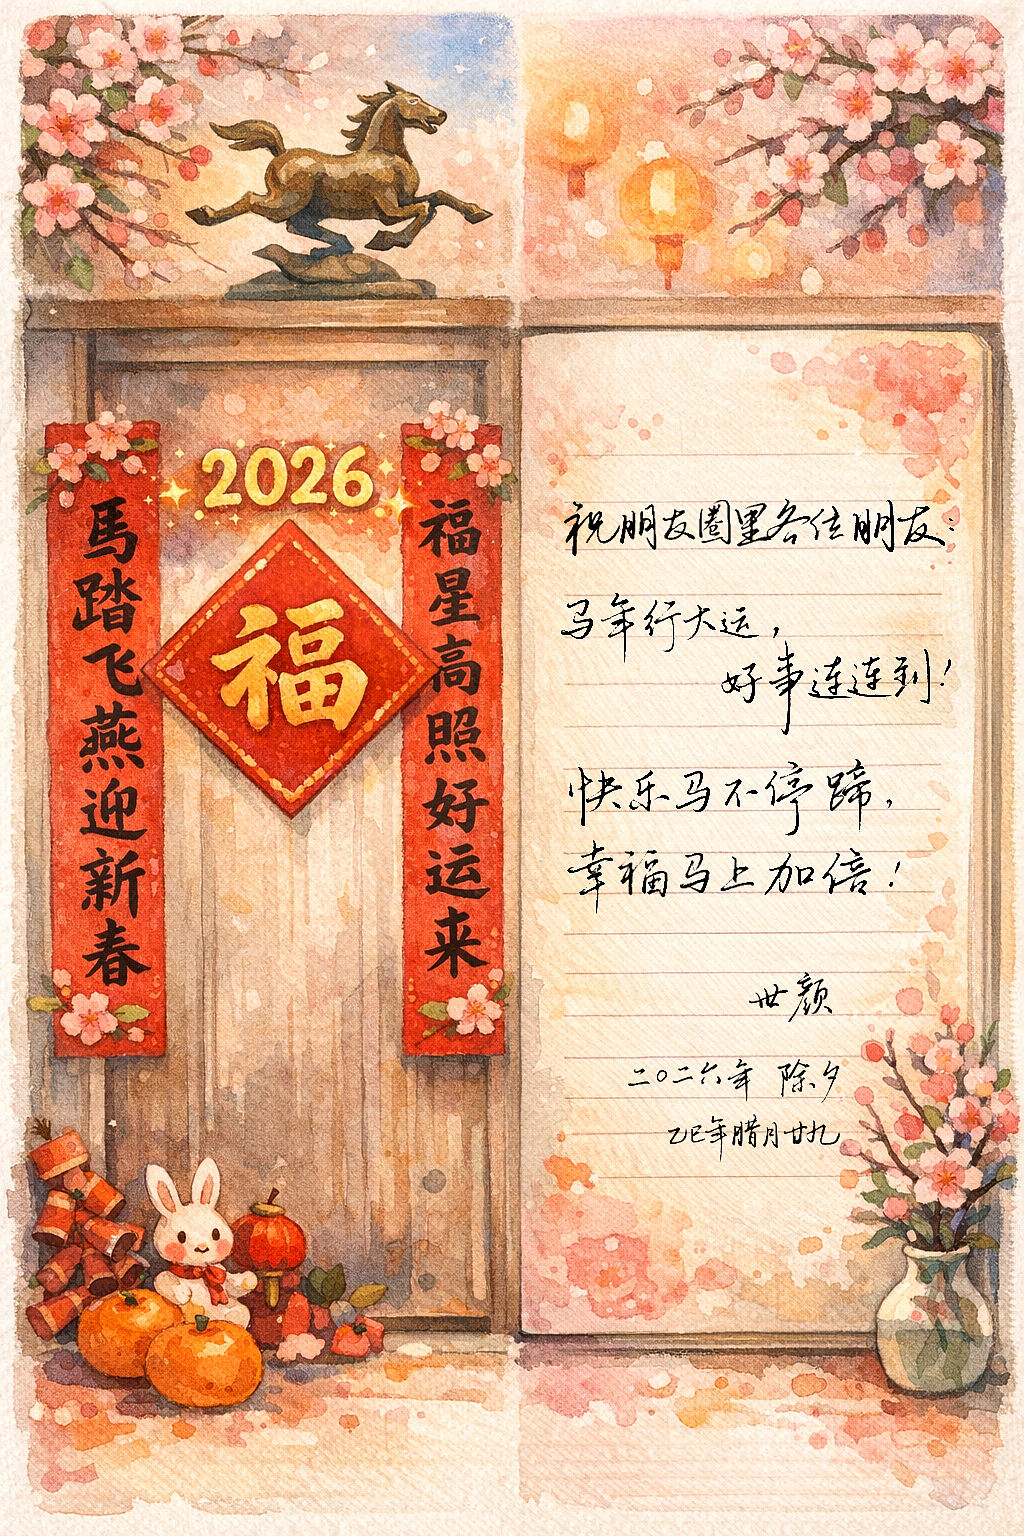 2026
福
馬踏飞燕迎新春
福星高照好运来
祝朋友圈里各位朋友:
马年行大运,
好事连连到!
快乐马不停蹄,
幸福马上加倍!
世颜
二〇二六年 除夕
乙巳年腊月廿九